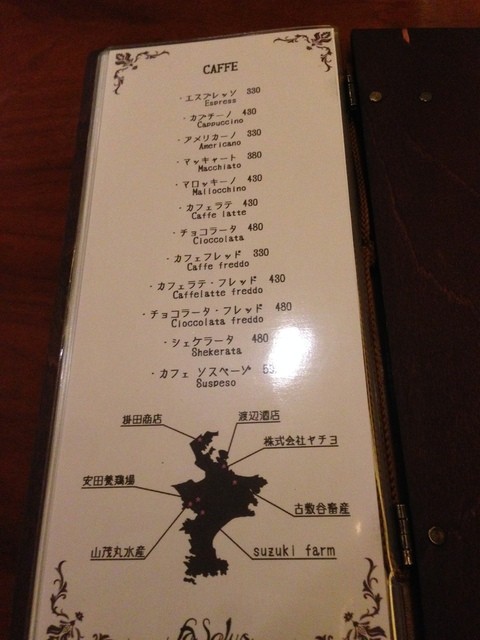 CAFFE
・エスプレッソ 330
Espress
・カプチーノ 430
Cappuccino
・アメリカーノ 330
Americano
・マッキャート 380
Macchiato
・マロッキーノ 430
Mallocchino
・カフェラテ 430
Caffe latte
・チョコラータ 480
Cioccolata
・カフェフレッド 330
Caffe freddo
・カフェラテ・フレッド 430
Caffelatte freddo
・チョコラータ・フレッド 480
Cioccolata freddo
・シェケラータ 480
Shekerata
・カフェ ソスペーゾ
Suspeso
掛田商店
渡辺酒店
株式会社ヤチヨ
安田養鶏場
古敷谷畜産
山茂丸水産
suzuki farm